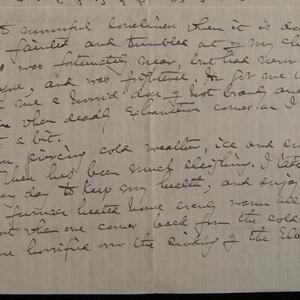 mournful loneliness when it is da
fainted and tumbled out my cl
was fortunately near, but had never
and was frightened. So got me
me a horrid dose of hot brandy and
when deadly exhaustion comes on I
a bit.
piercing cold weather, ice and sn
There has been much sleighing. I take
day to keep my health, and enjoy
furnace heated house every warm
when one comes back from the cold
horrified over the sinking of the Elb